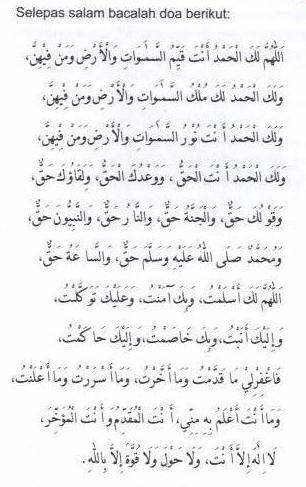 Selepas salam bacalah doa berikut:
اَللّٰهُمَّ لَكَ الْحَمْدُ أَنْتَ قَيِّمُ السَّمٰوَاتِ وَالْأَرْضِ وَمَنْ فِيْهِنَّ،
وَلَكَ الْحَمْدُ لَكَ مُلْكُ السَّمٰوَاتِ وَالْأَرْضِ وَمَنْ فِيْهِنَّ،
وَلَكَ الْحَمْدُ أَنْتَ نُوْرُ السَّمٰوَاتِ وَالْأَرْضِ وَمَنْ فِيْهِنَّ،
وَلَكَ الْحَمْدُ أَنْتَ الْحَقُّ، وَوَعْدُكَ الْحَقُّ، وَلِقَاؤُكَ حَقٌّ،
وَقَوْلُكَ حَقٌّ، وَالْجَنَّةُ حَقٌّ، وَالنَّارُ حَقٌّ، وَالنَّبِيُّوْنَ حَقٌّ،
وَمُحَمَّدٌ صَلَّى اللهُ عَلَيْهِ وَسَلَّمَ حَقٌّ، وَالسَّاعَةُ حَقٌّ،
اَللّٰهُمَّ لَكَ أَسْلَمْتُ، وَبِكَ آمَنْتُ، وَعَلَيْكَ تَوَكَّلْتُ،
وَإِلَيْكَ أَنَبْتُ، وَبِكَ خَاصَمْتُ، وَإِلَيْكَ حَاكَمْتُ،
فَاغْفِرْلِيْ مَا قَدَّمْتُ وَمَا أَخَّرْتُ، وَمَا أَسْرَرْتُ وَمَا أَعْلَنْتُ،
وَمَا أَنْتَ أَعْلَمُ بِهِ مِنِّيْ، أَنْتَ الْمُقَدِّمُ وَأَنْتَ الْمُؤَخِّرُ،
لَا إِلٰهَ إِلَّا أَنْتَ، وَلَا حَوْلَ وَلَا قُوَّةَ إِلَّا بِاللهِ.